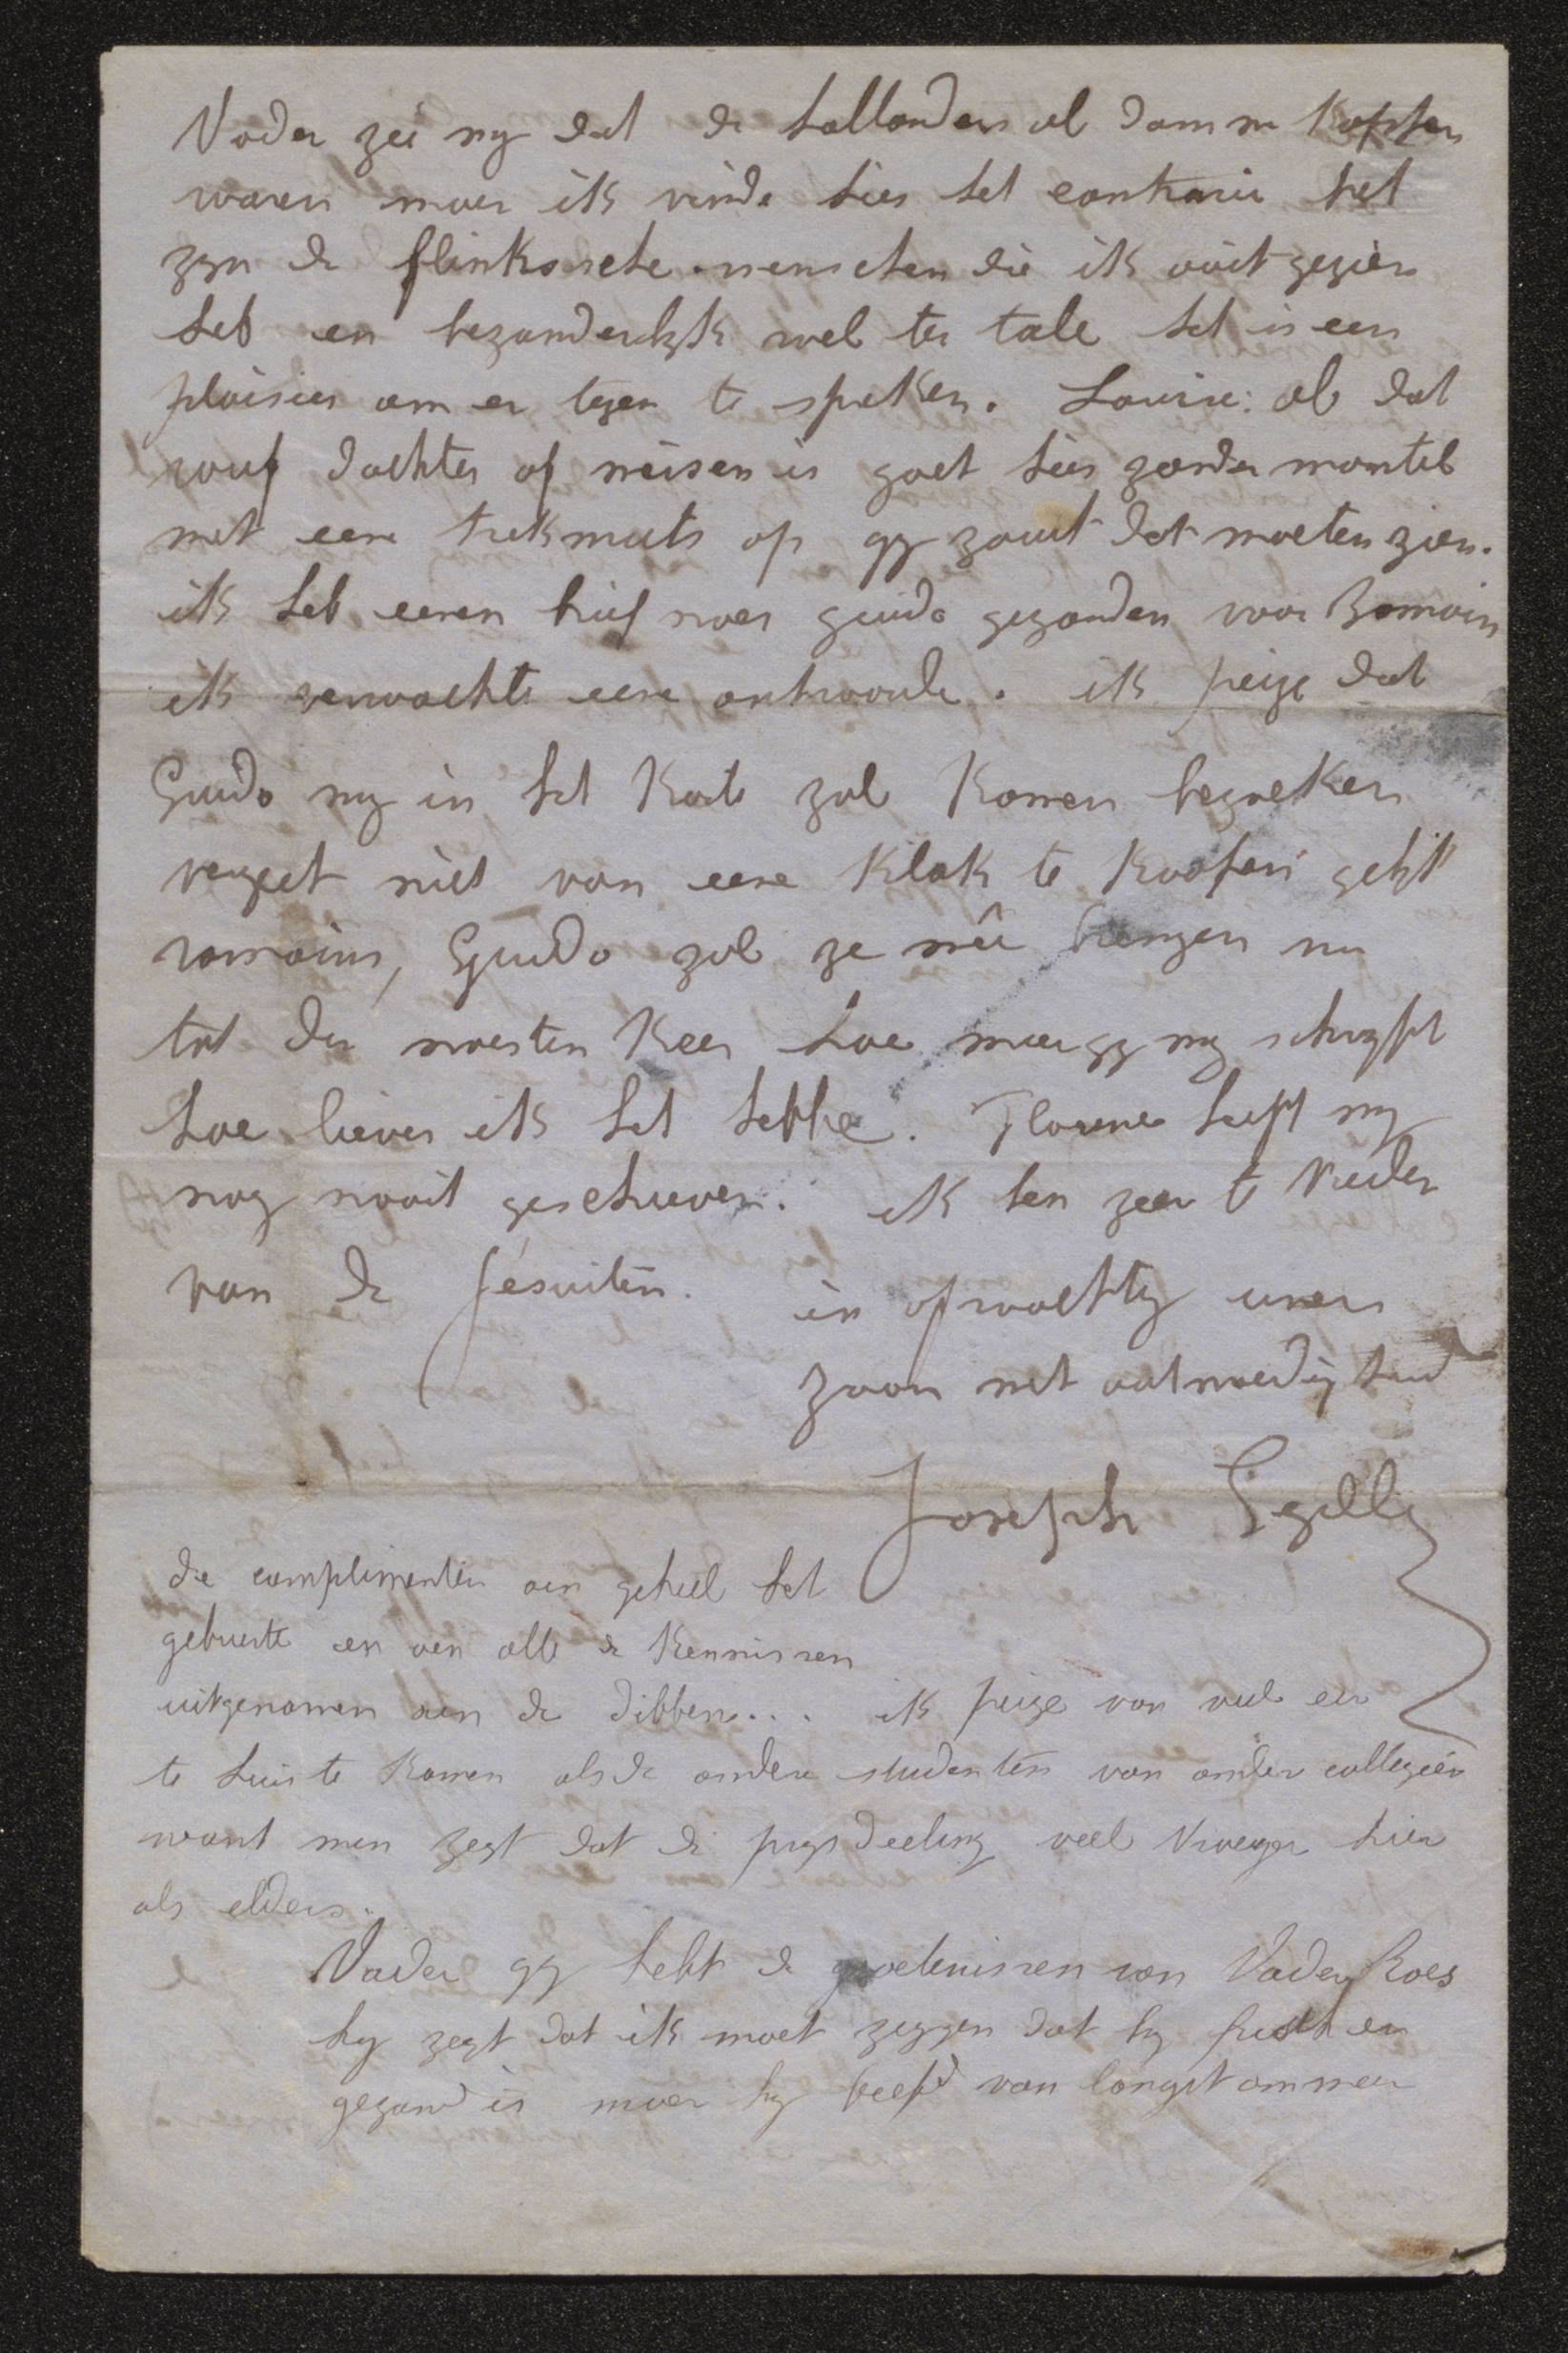 Vader zei my dat de hollanders al domme koppen
waren maer ik vinde hier het contrarie het
zyn de flinkssche menschen die ik ooit gezien
heb en bezonderlyk wel ter tale het is een
plaisier om er tegen te spreken. Louise: al dat
wuf dochter of meisen is goet hier zonder mantel
met eene trekmuts op gy zout dat moeten zien.
ik heb eenen brief naer guido gezonden voor Romain
ik verwachte eene antwoorde. ik peize dat
Guido my in het korte zal komen bezoeken
vergeet niet van eene klak te koopen gelyk
romains, Guido zal ze mêe brengen nu
tot den naesten keer hoe meer gy my schryft
hoe liever ik het hebbe. Florence heeft my
nog nooit geschreven. ik ben zeer te vreden
van de Jésuiten. in opwachting uwen
zoon met ootmoedigheid
Joseph Gezelle
de complimenten aen geheel het
gebuerte en aen alle de kennissen
uitgenomen aen de dibben... ik peize van veel eer
te huis te komen als de andere studenten van ander collegiën
want men zegt dat de prysdeeling veel vroeger hier
als elders.
Vader gy hebt de groetenissen van Vader Roes
hy zegt dat ik moet zeggen dat hy frisch en
gezond is maer hy beefd van langst ommer